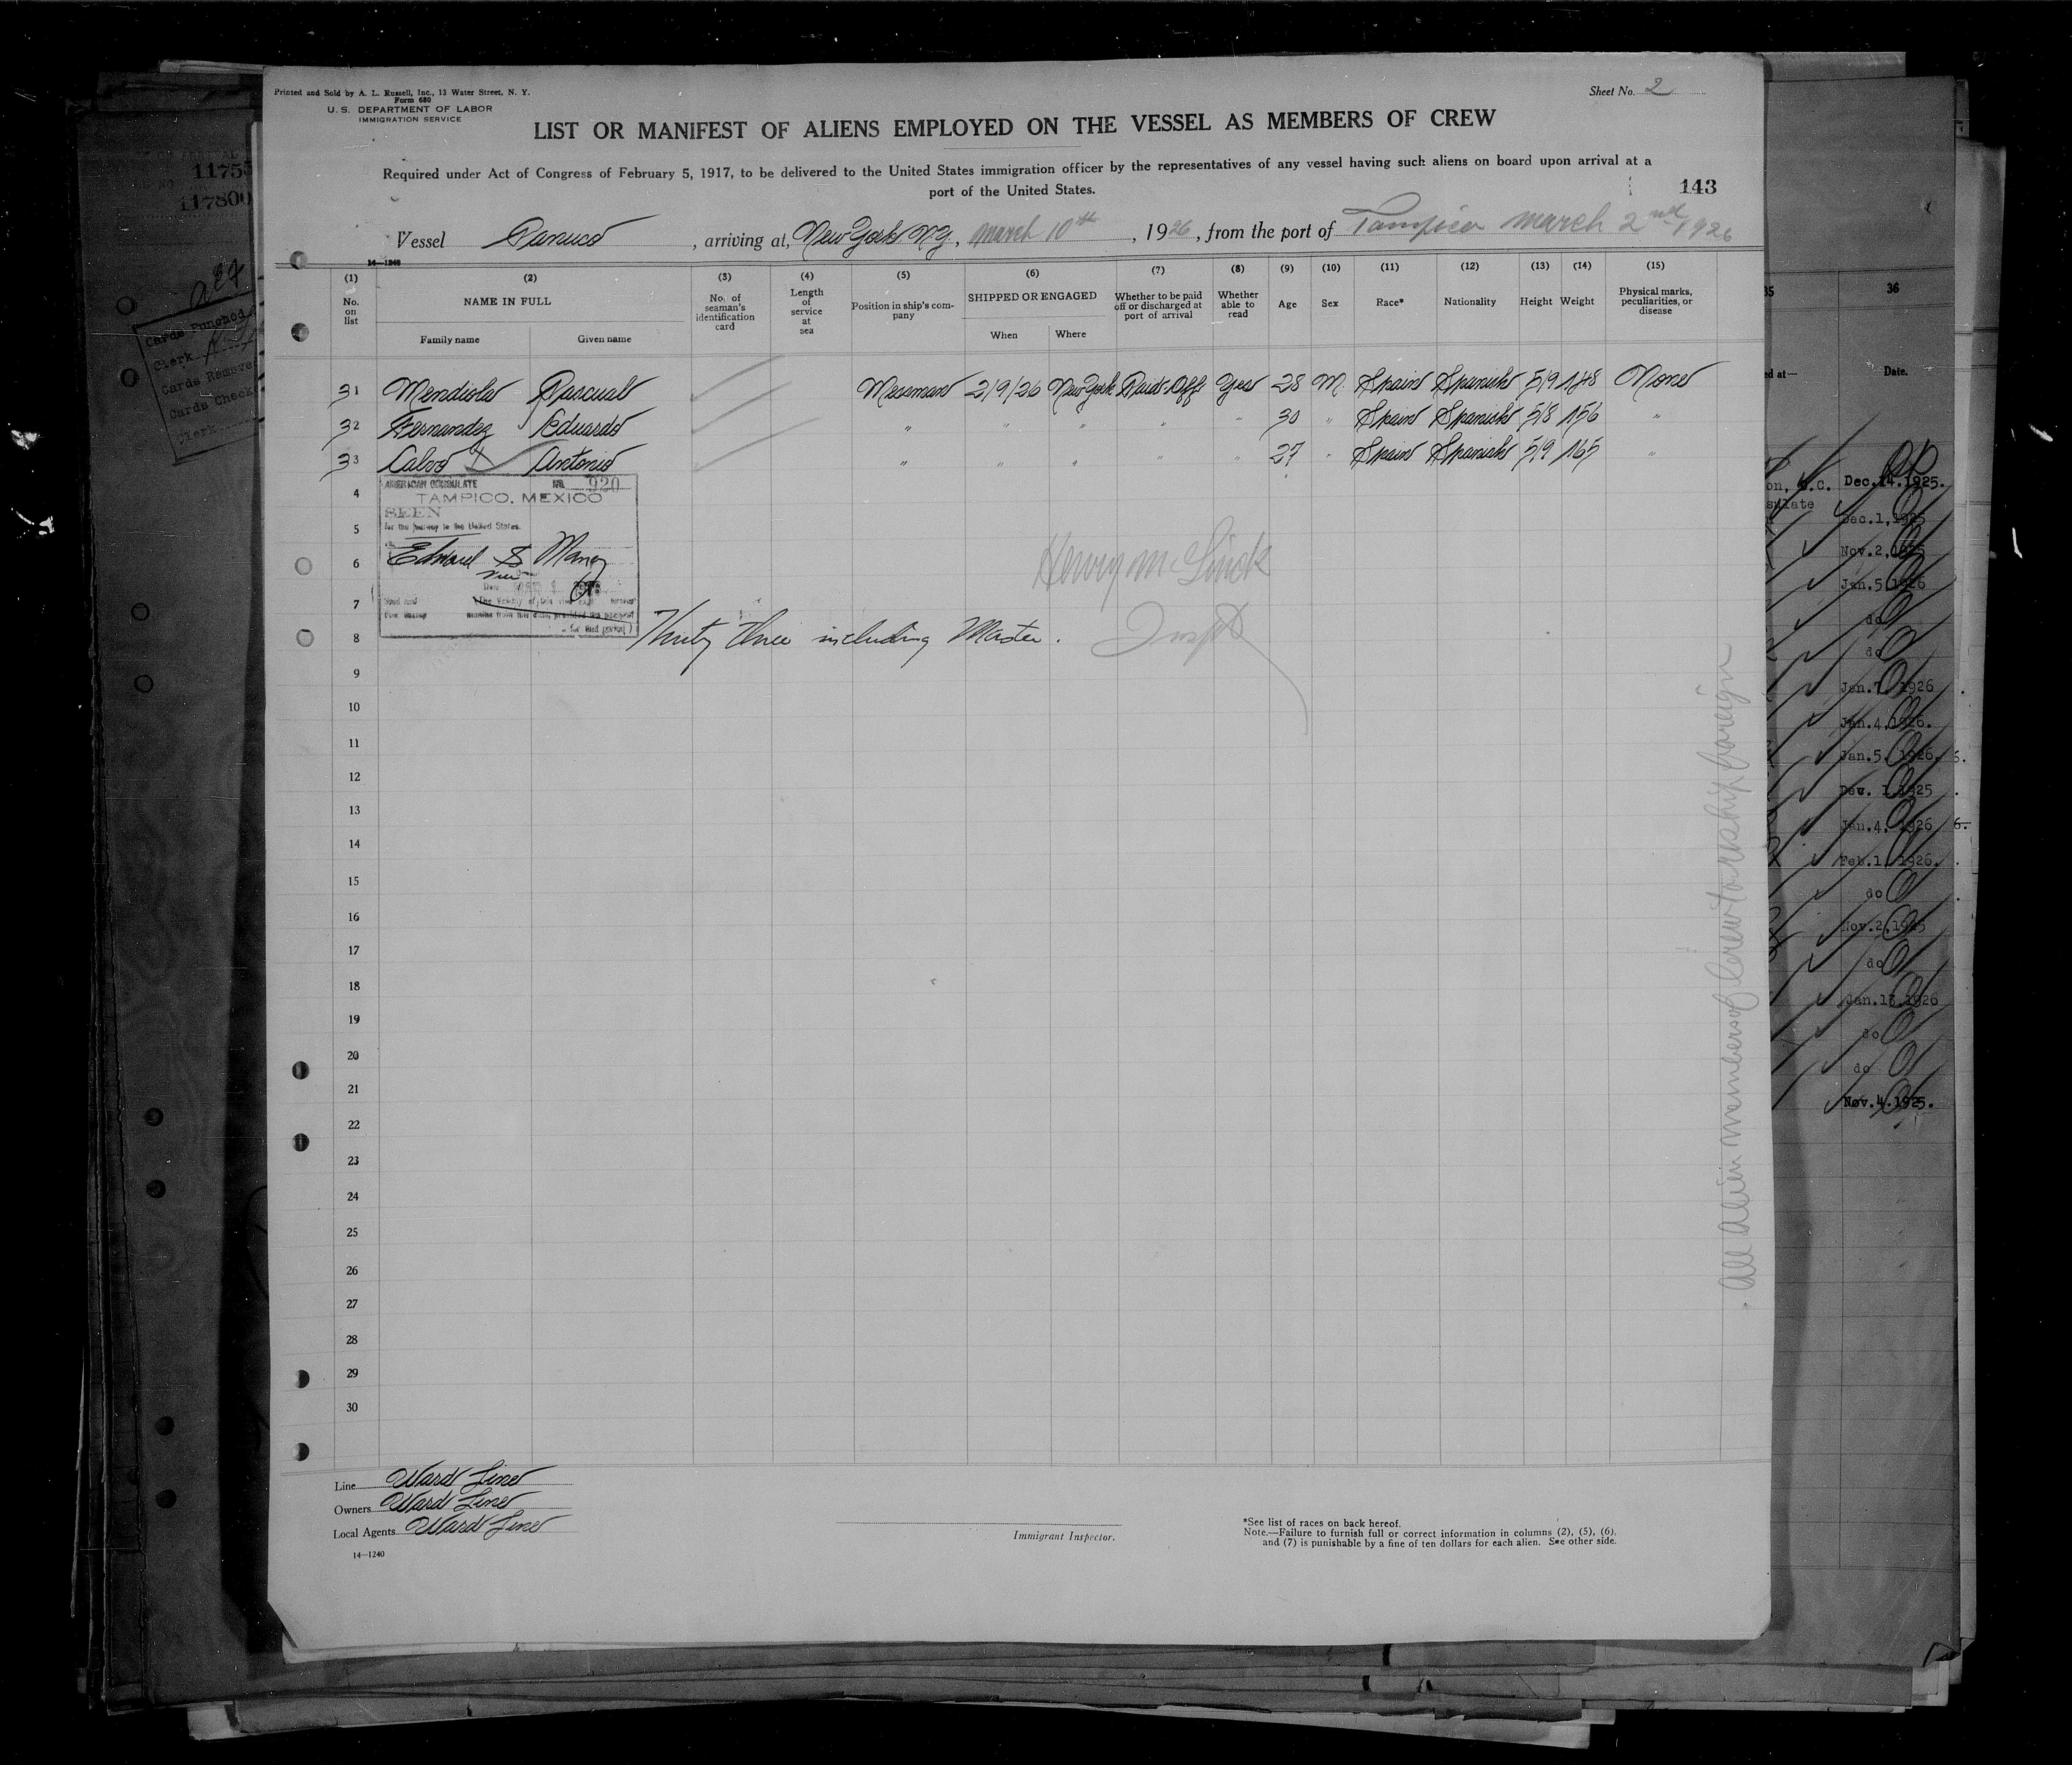 Printed and Sold by A. L. Russell, Inc., 13 Water Street, N. Y.
Form 680
U. S. DEPARTMENT OF LABOR
IMMIGRATION SERVICE
Sheet No. 2
LIST OR MANIFEST OF ALIENS EMPLOYED ON THE VESSEL AS MEMBERS OF CREW
Required under Act of Congress of February 5, 1917, to be delivered to the United States immigration officer by the representatives of any vessel having such aliens on board upon arrival at a
port of the United States.
143
Vessel Panuco, arriving at, New York NY, March 10th, 1926, from the port of Tampico March 2nd 1926
14—1240
(1) (2) (3) (4) (5) (6) (7) (8) (9) (10) (11) (12) (13) (14) (15)
No. on list
NAME IN FULL
Family name Given name
No. of seaman's identification card
Length of service at sea
Position in ship's company
SHIPPED OR ENGAGED
When Where
Whether to be paid off or discharged at port of arrival
Whether able to read
Age Sex Race* Nationality Height Weight
Physical marks, peculiarities, or disease
31 Mendiola Pascual Messman 2/9/26 New York Paid-Off Yes 28 M. Spain Spanish 5/9 148 None
32 Fernandez Eduardo " " " " " 30 " Spain Spanish 5/8 156 "
33 Calvo Antonio " " " " " 27 " Spain Spanish 5/9 165 "
AMERICAN CONSULATE No. 920
4
TAMPICO, MEXICO
SEEN
for the journey to the United States.
5
6
7
8
Henry M
Thirty three including Master.
9
10
11
12
13
14
15
16
17
18
19
20
21
22
23
24
25
26
27
28
29
30
All alien members of crew to reship foreign
Line Ward Line
Owners Ward Line
Local Agents Ward Line
14—1240
Immigrant Inspector.
*See list of races on back hereof.
Note.—Failure to furnish full or correct information in columns (2), (5), (6),
and (7) is punishable by a fine of ten dollars for each alien. See other side.
117800
Cards Punched
Clerk
Cards Remove
Cards Check
Clerk
36
Date.
Dec.14.1925.
Dec.1,1925
Nov.2,1925
Jan.5,1926
do
do
Jan.7, 1926
Jan.4,1926.
Jan.5. 1926.
Dec. 1,1925
Jan.4. 1926
Feb.1, 1926.
do
Nov.2,1925
do
Jan.13,1926
do
do
Nov.4.1925.